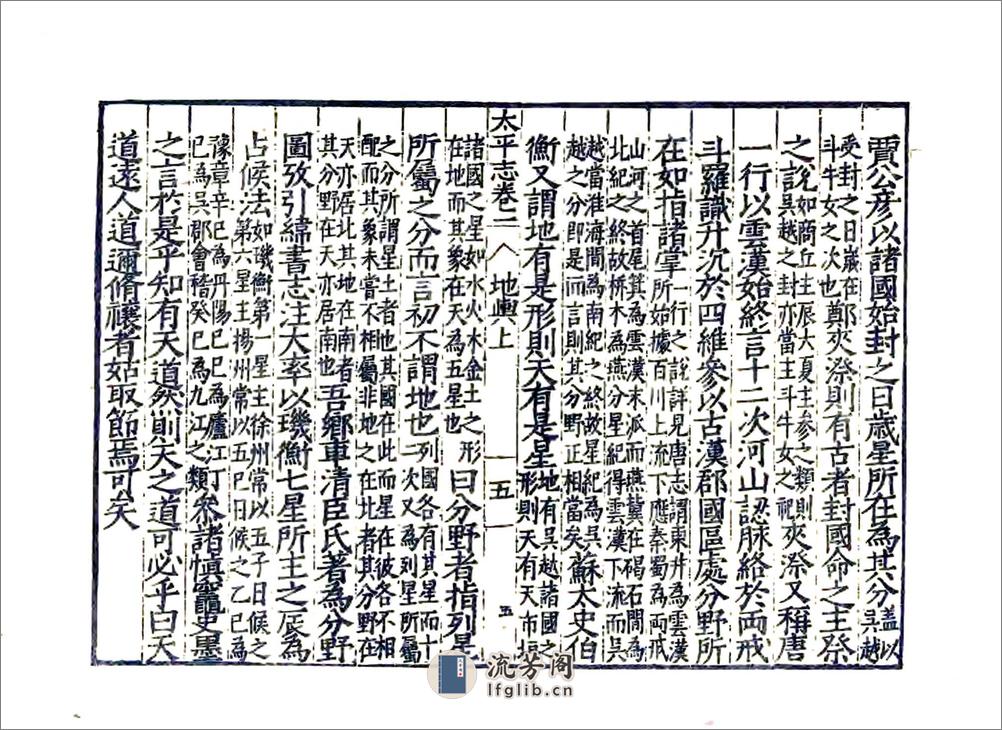 賈公彦以諸國始封之日歲星所在為其分蓋以吳越
受封之日歲在斗牛女之次也鄭夾漈則有古者封國命之主祭
之說如商丘主辰大夏主參之類則吳越之封亦當主斗牛女之祀夾漈又稱唐
一行以雲漢始終言十二次河山認脉絡於両戒
斗羅識升沉於四維參以古漢郡國區處分野所
在如指諸掌一行之說詳見唐志謂東井為雲漢所始據百川上流下應秦蜀為両戒
山河之首尾箕為雲漢末派而燕冀在碣石間為北紀之終故析木為燕分星紀得雲漢下流而吳
越當淮海間為南紀之終故星紀為吳越之分即是而言則其分野正相當矣蘇太史伯
衡又謂地有是形則天有是星地有吳越諸國之形則天有天市垣
太平志卷二 地輿上 五 五
諸國之星如水火木金土之形在地而其象在天為五星也曰分野者指列星
所屬之分而言初不謂地也列國各有其星而十二次又為列星所屬
之分所謂星土者也其國在此而星在彼各不相配而其象未嘗不相屬非地之在北者其分野在
天亦居北其地在南者其分野在天亦居南也吾鄉車清臣氏著為分野
圖攷引緯書志注大率以璣衡七星所主之辰為
占候法如璣衡第一星主徐州常以五子日候之第六星主揚州常以五巳日候之乙巳為
豫章辛巳為丹陽己巳為廬江丁巳為吳郡會稽癸巳為九江之類參諸慎竈史墨
之言於是乎知有天道然則天之道可必乎曰天
道遠人道邇脩禳者姑取節焉可矣
流芳阁
lfglib.cn